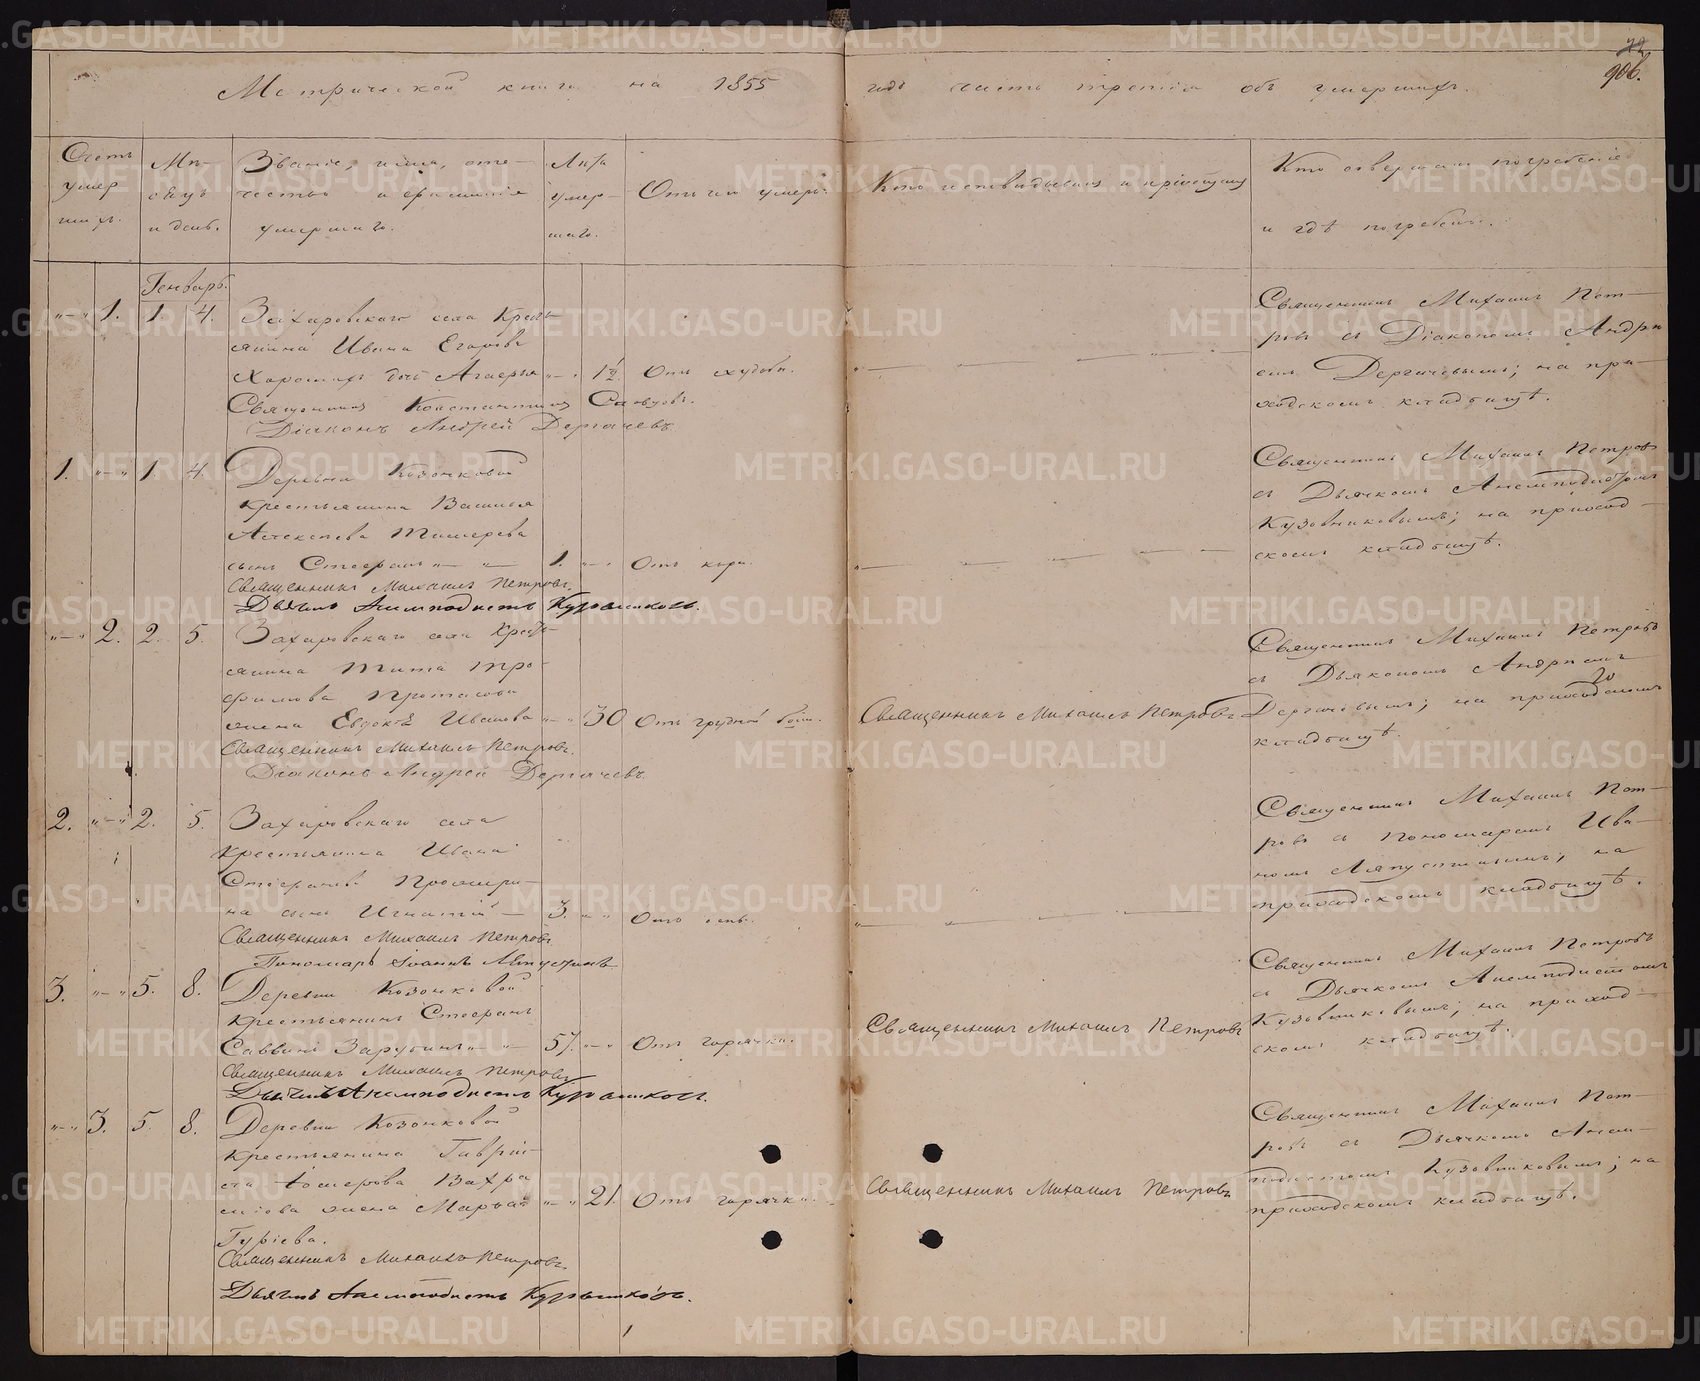 72
906.
Метрической книги на 1855 годъ часть третія объ умершихъ.
Счетъ умерших.
Мѣсяцъ и день.
Званіе, имя, отечество и фамилія умершаго.
Лѣта умершаго.
Отъ чего умеръ.
Кто исповѣдывалъ и пріобщалъ
Кто совершалъ погребеніе
и гдѣ погребены.
Генварь.
"-" 1. 1 4. Захаровскаго села Кресть-
янина Ивана Егорова
Хорошихъ дочь Агаѳья "-" 1/2. Отъ худобы.
Священникъ Константинъ
Діаконъ Андрей Дергачевъ
Священникъ Михаилъ Пет-
ровъ съ Діакономъ Андре
емъ Дергачевымъ; на при-
ходскомъ кладбищѣ.
1. "-" 1. 4. Деревни Козонковой
крестьянина Василья
Алексѣева
сынъ Стефанъ 1. "-" Отъ кори.
Священникъ Михаилъ Петровъ
Дьячекъ Анемподистъ Кузовниковъ.
Священникъ Михаилъ Петровъ
съ Дьячкомъ Анемподистомъ
Кузовниковымъ; на приход-
скомъ кладбищѣ.
"-" 2. 2. 5. Захаровскаго села Кресть-
янина Тита Тро-
фимова
жена Евдокія Иванова "-" 30 Отъ грудной болѣ.
Священникъ Михаилъ Петровъ.
Діаконъ Андрей Дергачевъ
Священникъ Михаилъ Петровъ
Священникъ Михаилъ Петровъ
съ Дьякономъ Андреемъ
Дергачевымъ; на приходскомъ
кладбищѣ.
2. "-" 2. 5. Захаровскаго села
Крестьянина Ивана
Стефанова
на сынъ Игнатій 3. "-" Отъ
Священникъ Михаилъ Петровъ
Пономарь Іоаннъ Ляпустинъ
Священникъ Михаилъ Пет-
ровъ съ Пономаремъ Ива-
номъ Ляпустинымъ; на
приходскомъ кладбищѣ.
3. "-" 5. 8. Деревни Козонковой
крестьянинъ Стефанъ
Саввинъ Зарубинъ 57. "-" Отъ горячки.
Священникъ Михаилъ Петровъ
Дьячекъ Анемподистъ Кузовниковъ.
Священникъ Михаилъ Петровъ
Священникъ Михаилъ Петровъ
съ Дьячкомъ Анемподистомъ
Кузовниковымъ; на приход-
скомъ кладбищѣ.
"-" 3. 5. 8. Деревни Козонковой
крестьянина Гаврі-
ила Вахра
мѣева жена Марѳа "-" 21. Отъ горячки.
Гурьева.
Священникъ Михаилъ Петровъ
Дьячекъ Анемподистъ Кузовниковъ.
Священникъ Михаилъ Петровъ
Священникъ Михаилъ Пет-
ровъ съ Дьячкомъ Анем-
подистомъ Кузовниковымъ; на
приходскомъ кладбищѣ.
METRIKI.GASO-URAL.RU